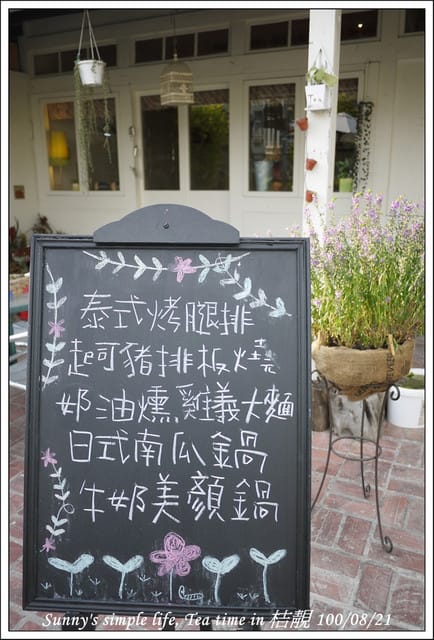 泰式烤腿排
起司豬排板燒
奶油燻雞義大麵
日式南瓜鍋
牛奶美顏鍋
Sunny's simple life, Tea time in 桔靚 100/08/21